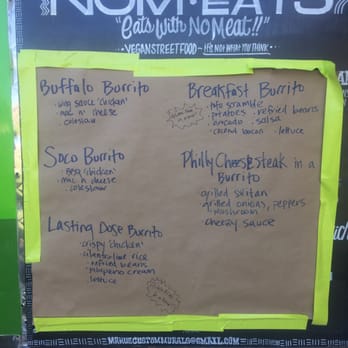 NOM•EATS
"Eats With No Meat!!"
•VEGAN STREET FOOD~IT'S NOT WHAT YOU THINK•
Buffalo Burrito
•wing sauce 'chicken'
mac n' cheese
•coleslaw
Breakfast Burrito
•tofu scramble
•potatoes •refried beans
•avocado •salsa
•coconut bacon •lettuce
Soco Burrito
•BBQ 'chicken'
•mac n cheese
•coleslaw
Philly Cheesesteak in a
Burrito
grilled seitan
•grilled onions, peppers
mushroom
•cheezy sauce
Lasting Dose Burrito
•crispy 'chicken'
•cilantro-lime rice
•refried beans
•jalapeno cream
lettuce
MAKUE.CUSTOMMURALS@GMAIL.COM